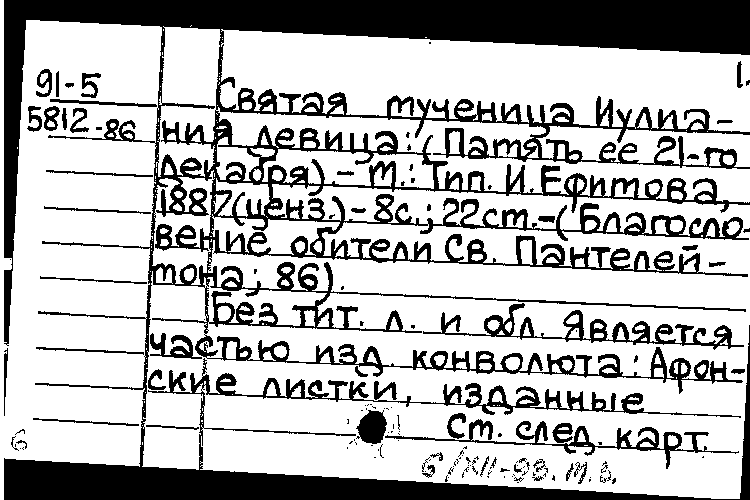 1.
91-5
5812-86
Святая мученица Иулиа-
ния девица: (Память ее 21-го
декабря).- М.: Тип. И. Ефимова,
1887(ценз.)-8с.; 22 см.-(Благосло-
вение обители Св. Пантелей-
мона; 86).
Без тит. л. и обл. Является
частью изд. конволюта: Афон-
ские листки, изданные
См. след. карт.
6
6/XII-93. М.З.